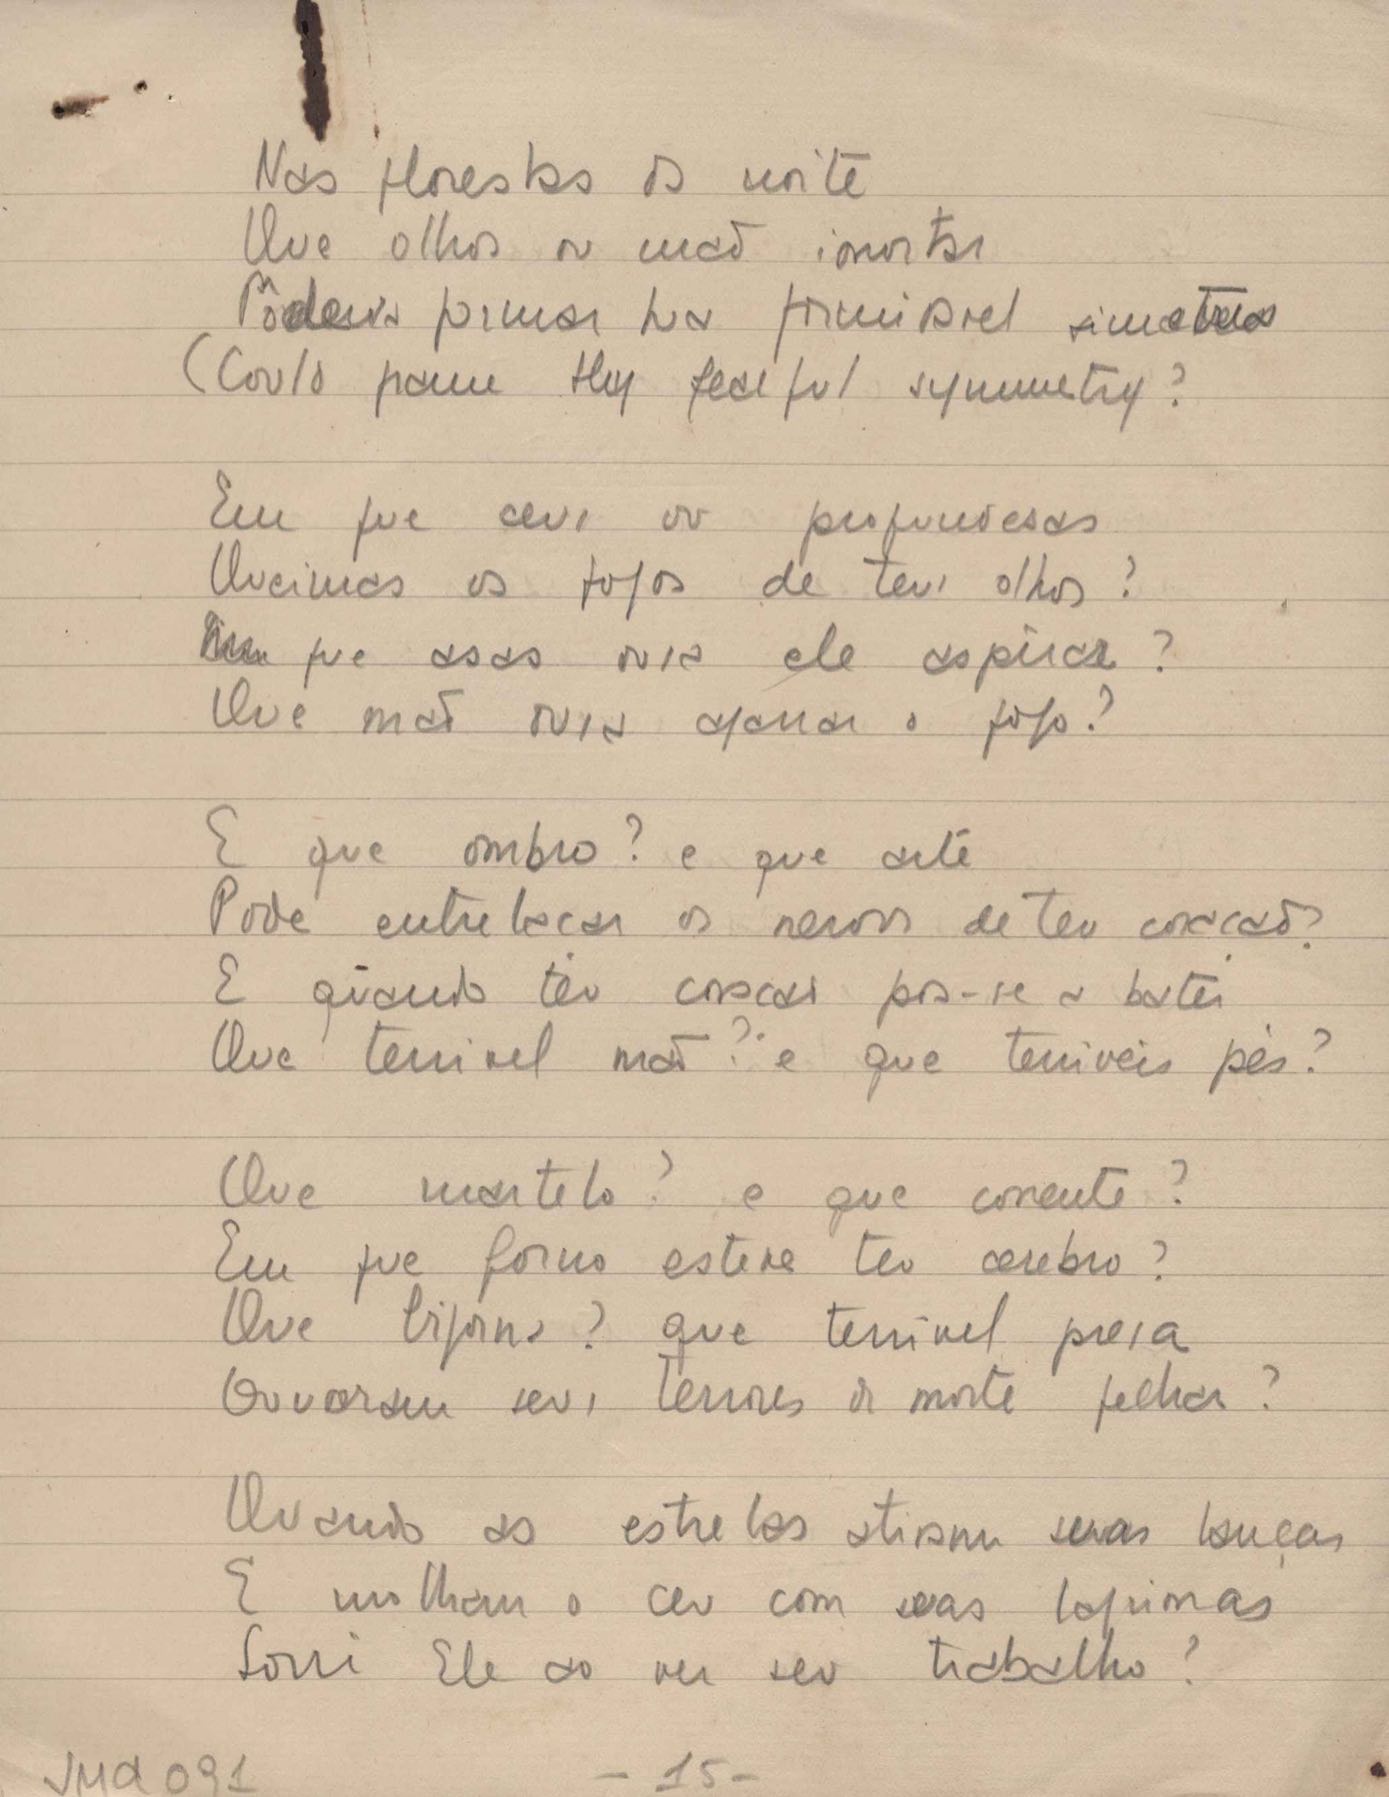 Nas florestas da noite
Que olhos ou mão imortar
Pôderia formar tua formidavel simetria
(Could frame thy fearful symmetry?
Em que ceus ou profundesas
Queimas os fogos de teus olhos?
Em que asas ousa ele aspirar?
Que mão ousa agarrar o fogo?
E que ombro? e que arte
Pode entrelaçar os nervos de teu coração?
E quando teu coração pos-se a bater
Que terrivel mão? e que terriveis pés?
Que martelo? e que corrente?
Em que forno esteve teu cerebro?
Que bigorna? que terrivel presa
Ousaram seus terrores de morte fechar?
Quando as estrelas atiram suas lanças
E molham o ceu com suas lagrimas
Sorri Ele ao ver seu trabalho?
JMd 091
- 15 -